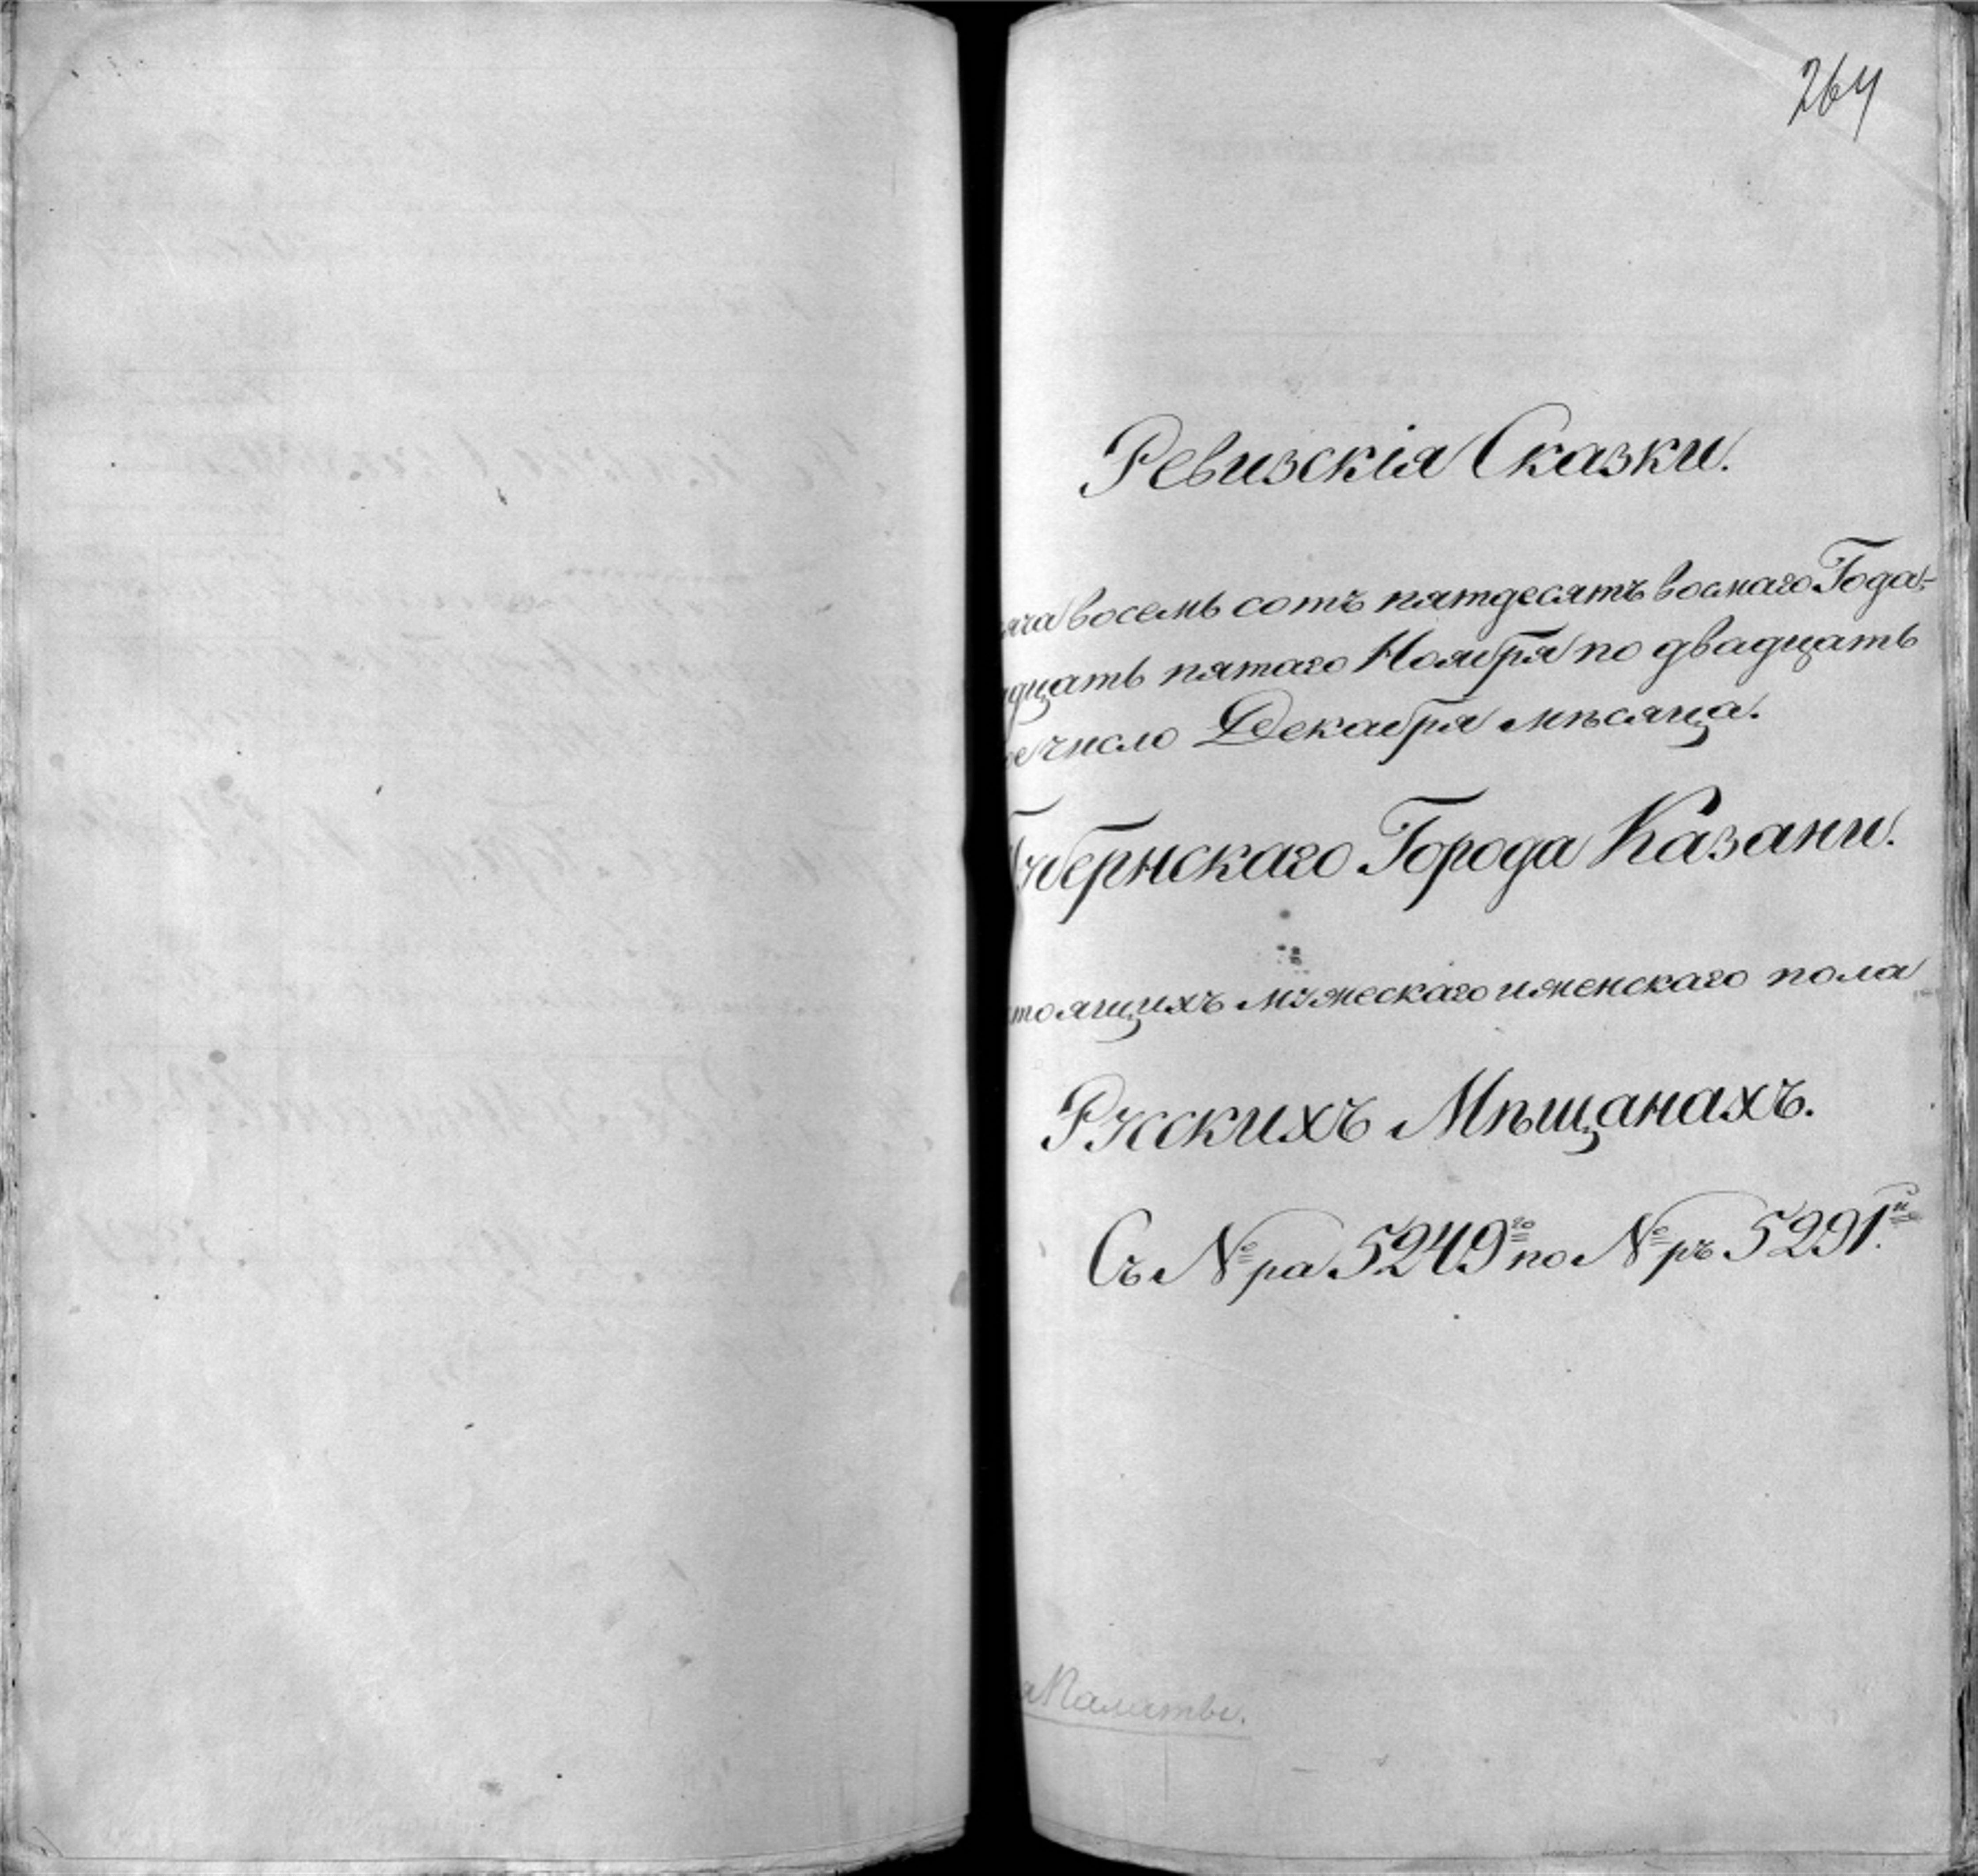 264
Ревизскія Сказки.
яча восемь сотъ пятдесятъ восмаго Года-
дцать пятаго Ноября по двадцать
е число Декабря мѣсяца.
Губернскаго Города Казани.
тоящихъ мужескаго и женскаго пола
Русскихъ Мѣщанахъ.
Съ №ра 5249го по №ръ 5291й.
а Палаты.